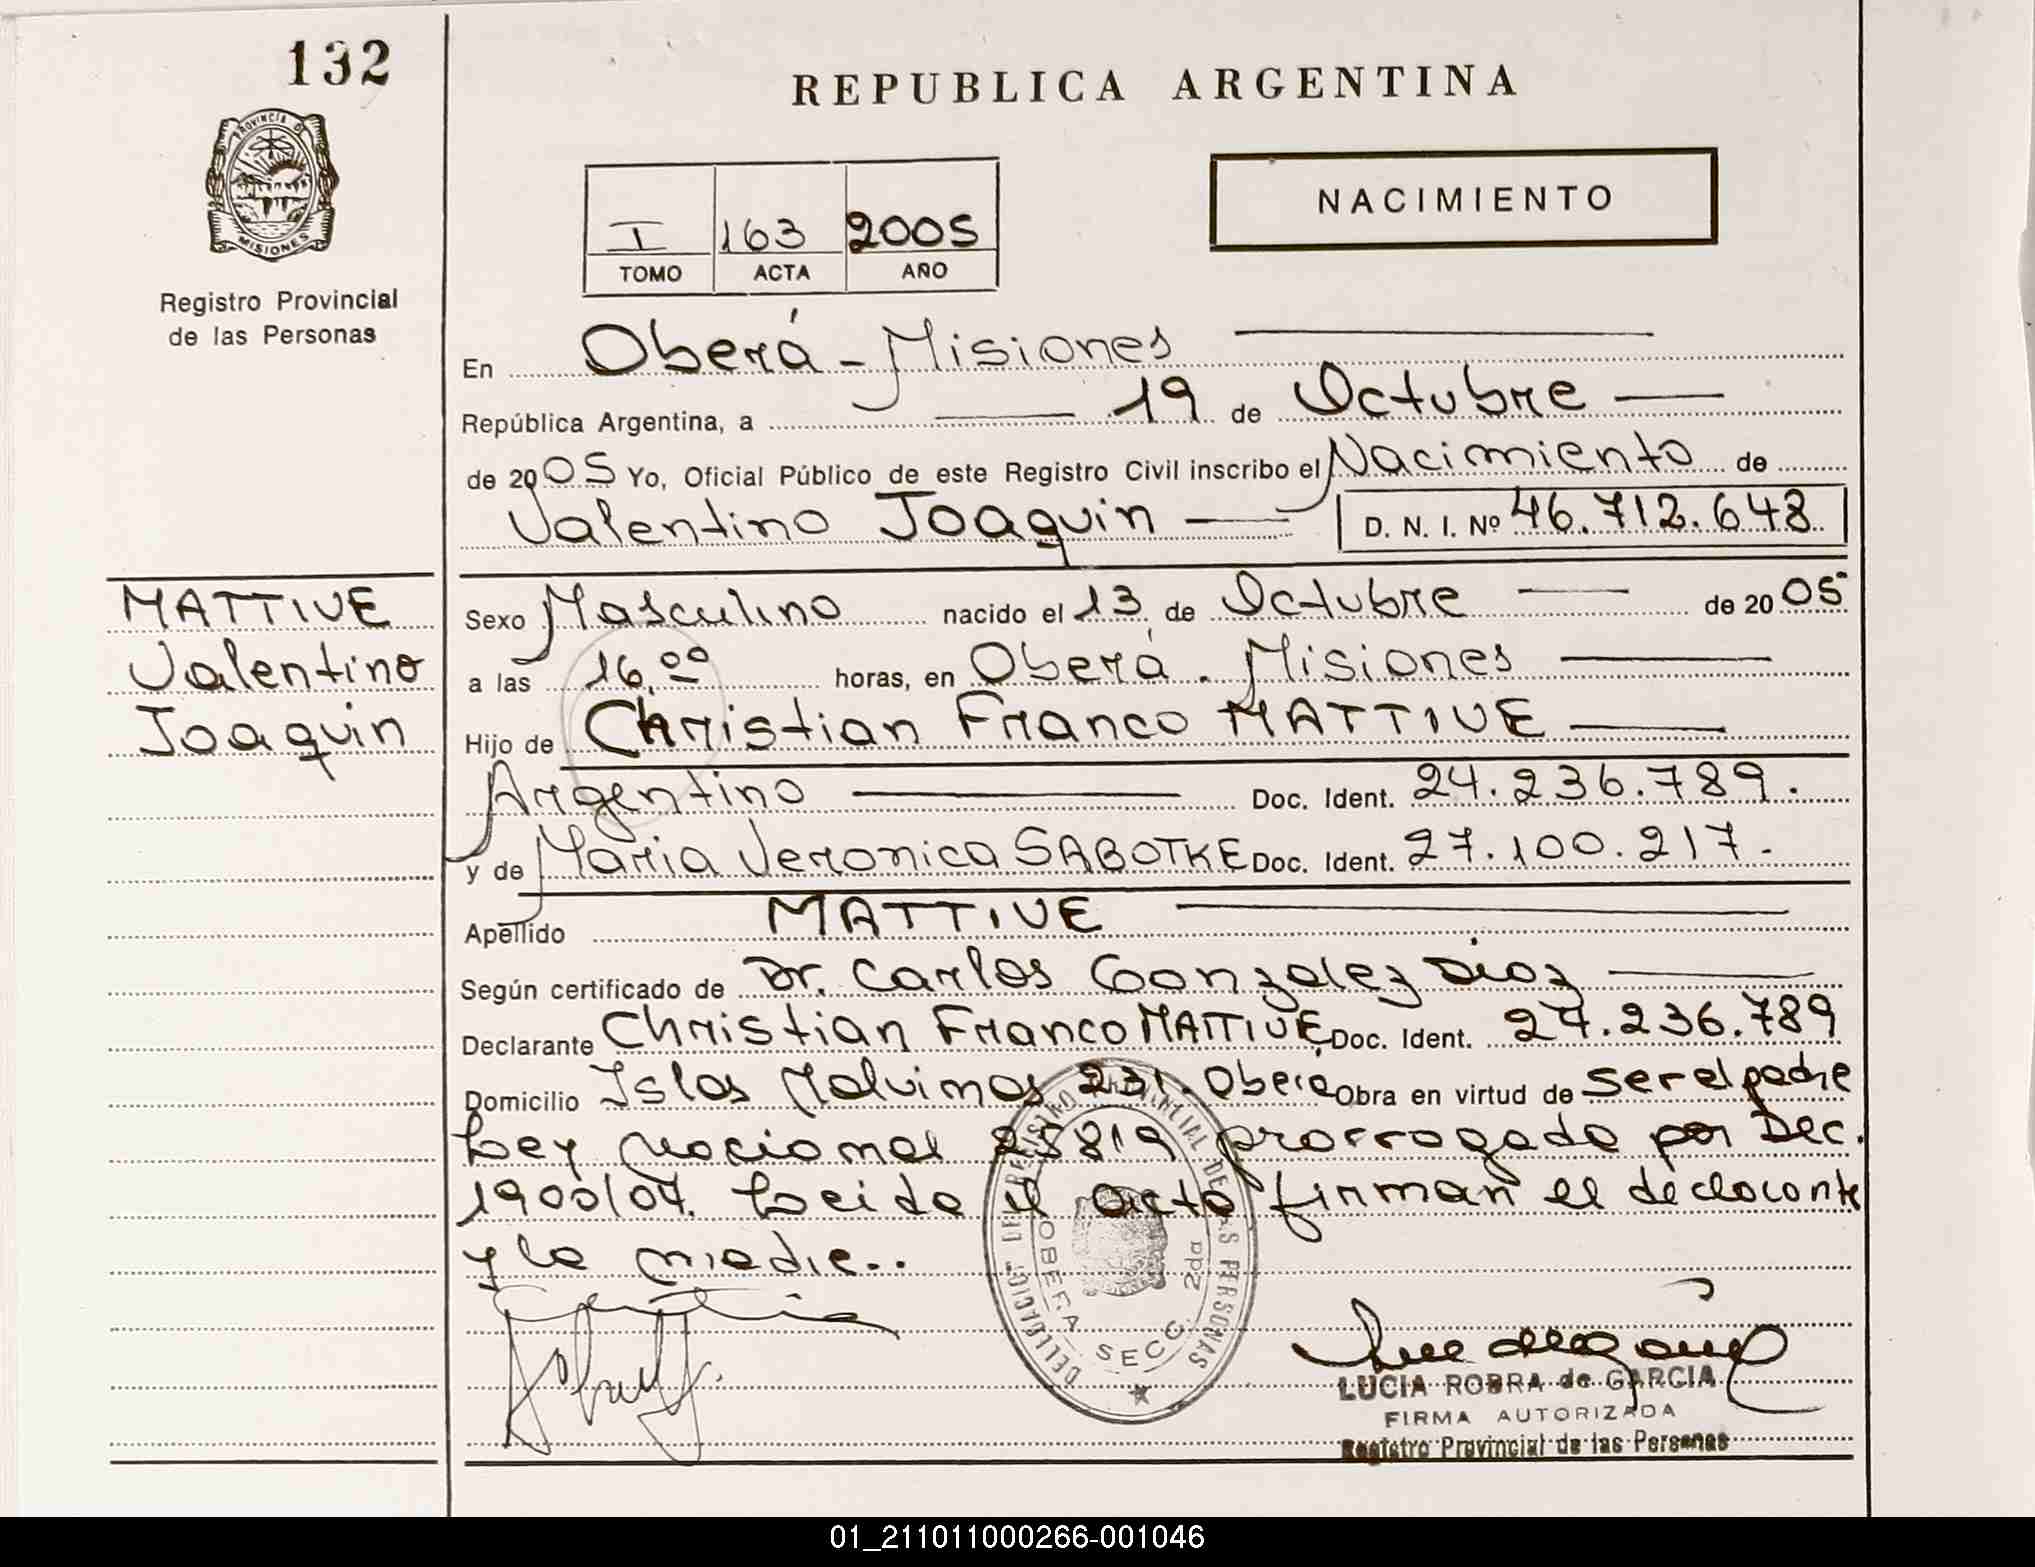 132
REPUBLICA ARGENTINA
PROVINCIA DE
MISIONES
Registro Provincial
de las Personas
I 163 2005
TOMO ACTA AÑO
NACIMIENTO
En Oberá - Misiones
República Argentina, a 19 de Octubre
de 2005 Yo, Oficial Público de este Registro Civil inscribo el Nacimiento de
Valentino Joaquin D. N. I. Nº 46.712.648
MATTIVE
Valentino
Joaquin
Sexo Masculino nacido el 13 de Octubre de 2005
a las 16,00 horas, en Oberá. Misiones
Hijo de Christian Franco MATTIVE
Argentino Doc. Ident. 24.236.789.
y de Maria Veronica SABOTKE Doc. Ident. 27.100.217.
Apellido MATTIVE
Según certificado de Dr. Carlos Gonzalez Dioz
Declarante Christian Franco MATTIVE Doc. Ident. 24.236.789
Domicilio Islas Malvinas 231. Obera Obra en virtud de ser el padre
Ley Nacional 25819 prorrogada por Dec.
1900/04. Leida el acta firman el declarante
y la madre..
DELEGACION DEL REGISTRO PROVINCIAL DE LAS PERSONAS
OBERA SECC. 2da
LUCIA ROBRA de GARCIA
FIRMA AUTORIZADA
Registro Provincial de las Personas
01_211011000266-001046